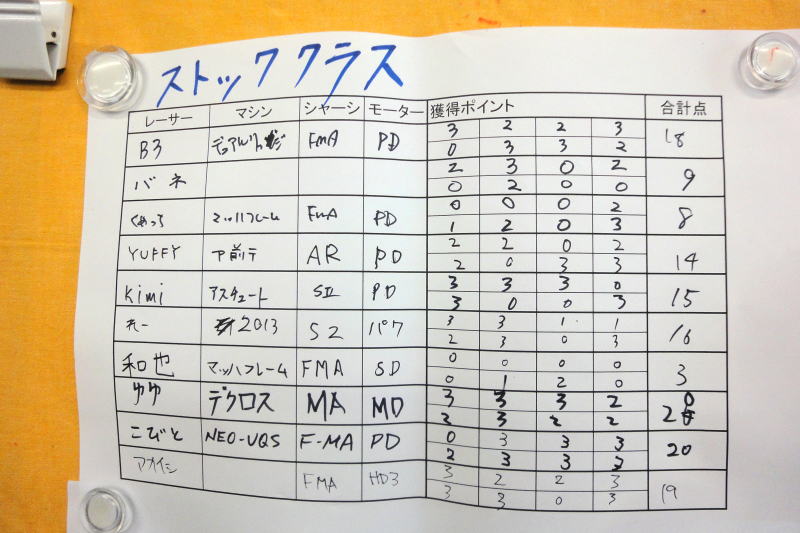 ストッククラス
レーサー マシン シャーシ モーター 獲得ポイント 合計点
B3 FMA PD 3 2 2 3 18
0 3 3 2
バネ 2 3 0 2 9
0 2 0 0
マッハフレーム FMA PD 0 0 0 2 8
1 2 0 3
YUFFY ア前テ AR PD 2 2 0 2 14
2 0 3 3
kimi アスチュート SII PD 3 3 3 0 15
3 0 0 3
れー 2013 S2 パワ 3 3 1 1 16
2 3 0 3
和也 マッハフレーム FMA SD 0 0 0 0 3
0 1 2 0
ゆゆ デクロス MA MD 3 3 3 2
2 3 2 2
こびと NEO-VQS F-MA PD 0 3 3 3 20
2 3 3 3
アオイシ FMA HD3 3 2 2 3 19
3 3 0 3